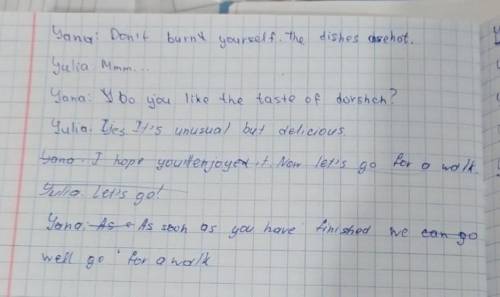 Yana: Don't burn yourself. The dishes are hot.
Yulia: Mmm...
Yana: Do you like the taste of dorshch?
Yulia: Yes It's unusual but delicious.
Yana: I hope you enjoyed it. Now let's go for a walk.
Yulia: Let's go!
Yana: As As soon as you have finished we can go
we'll go for a walk